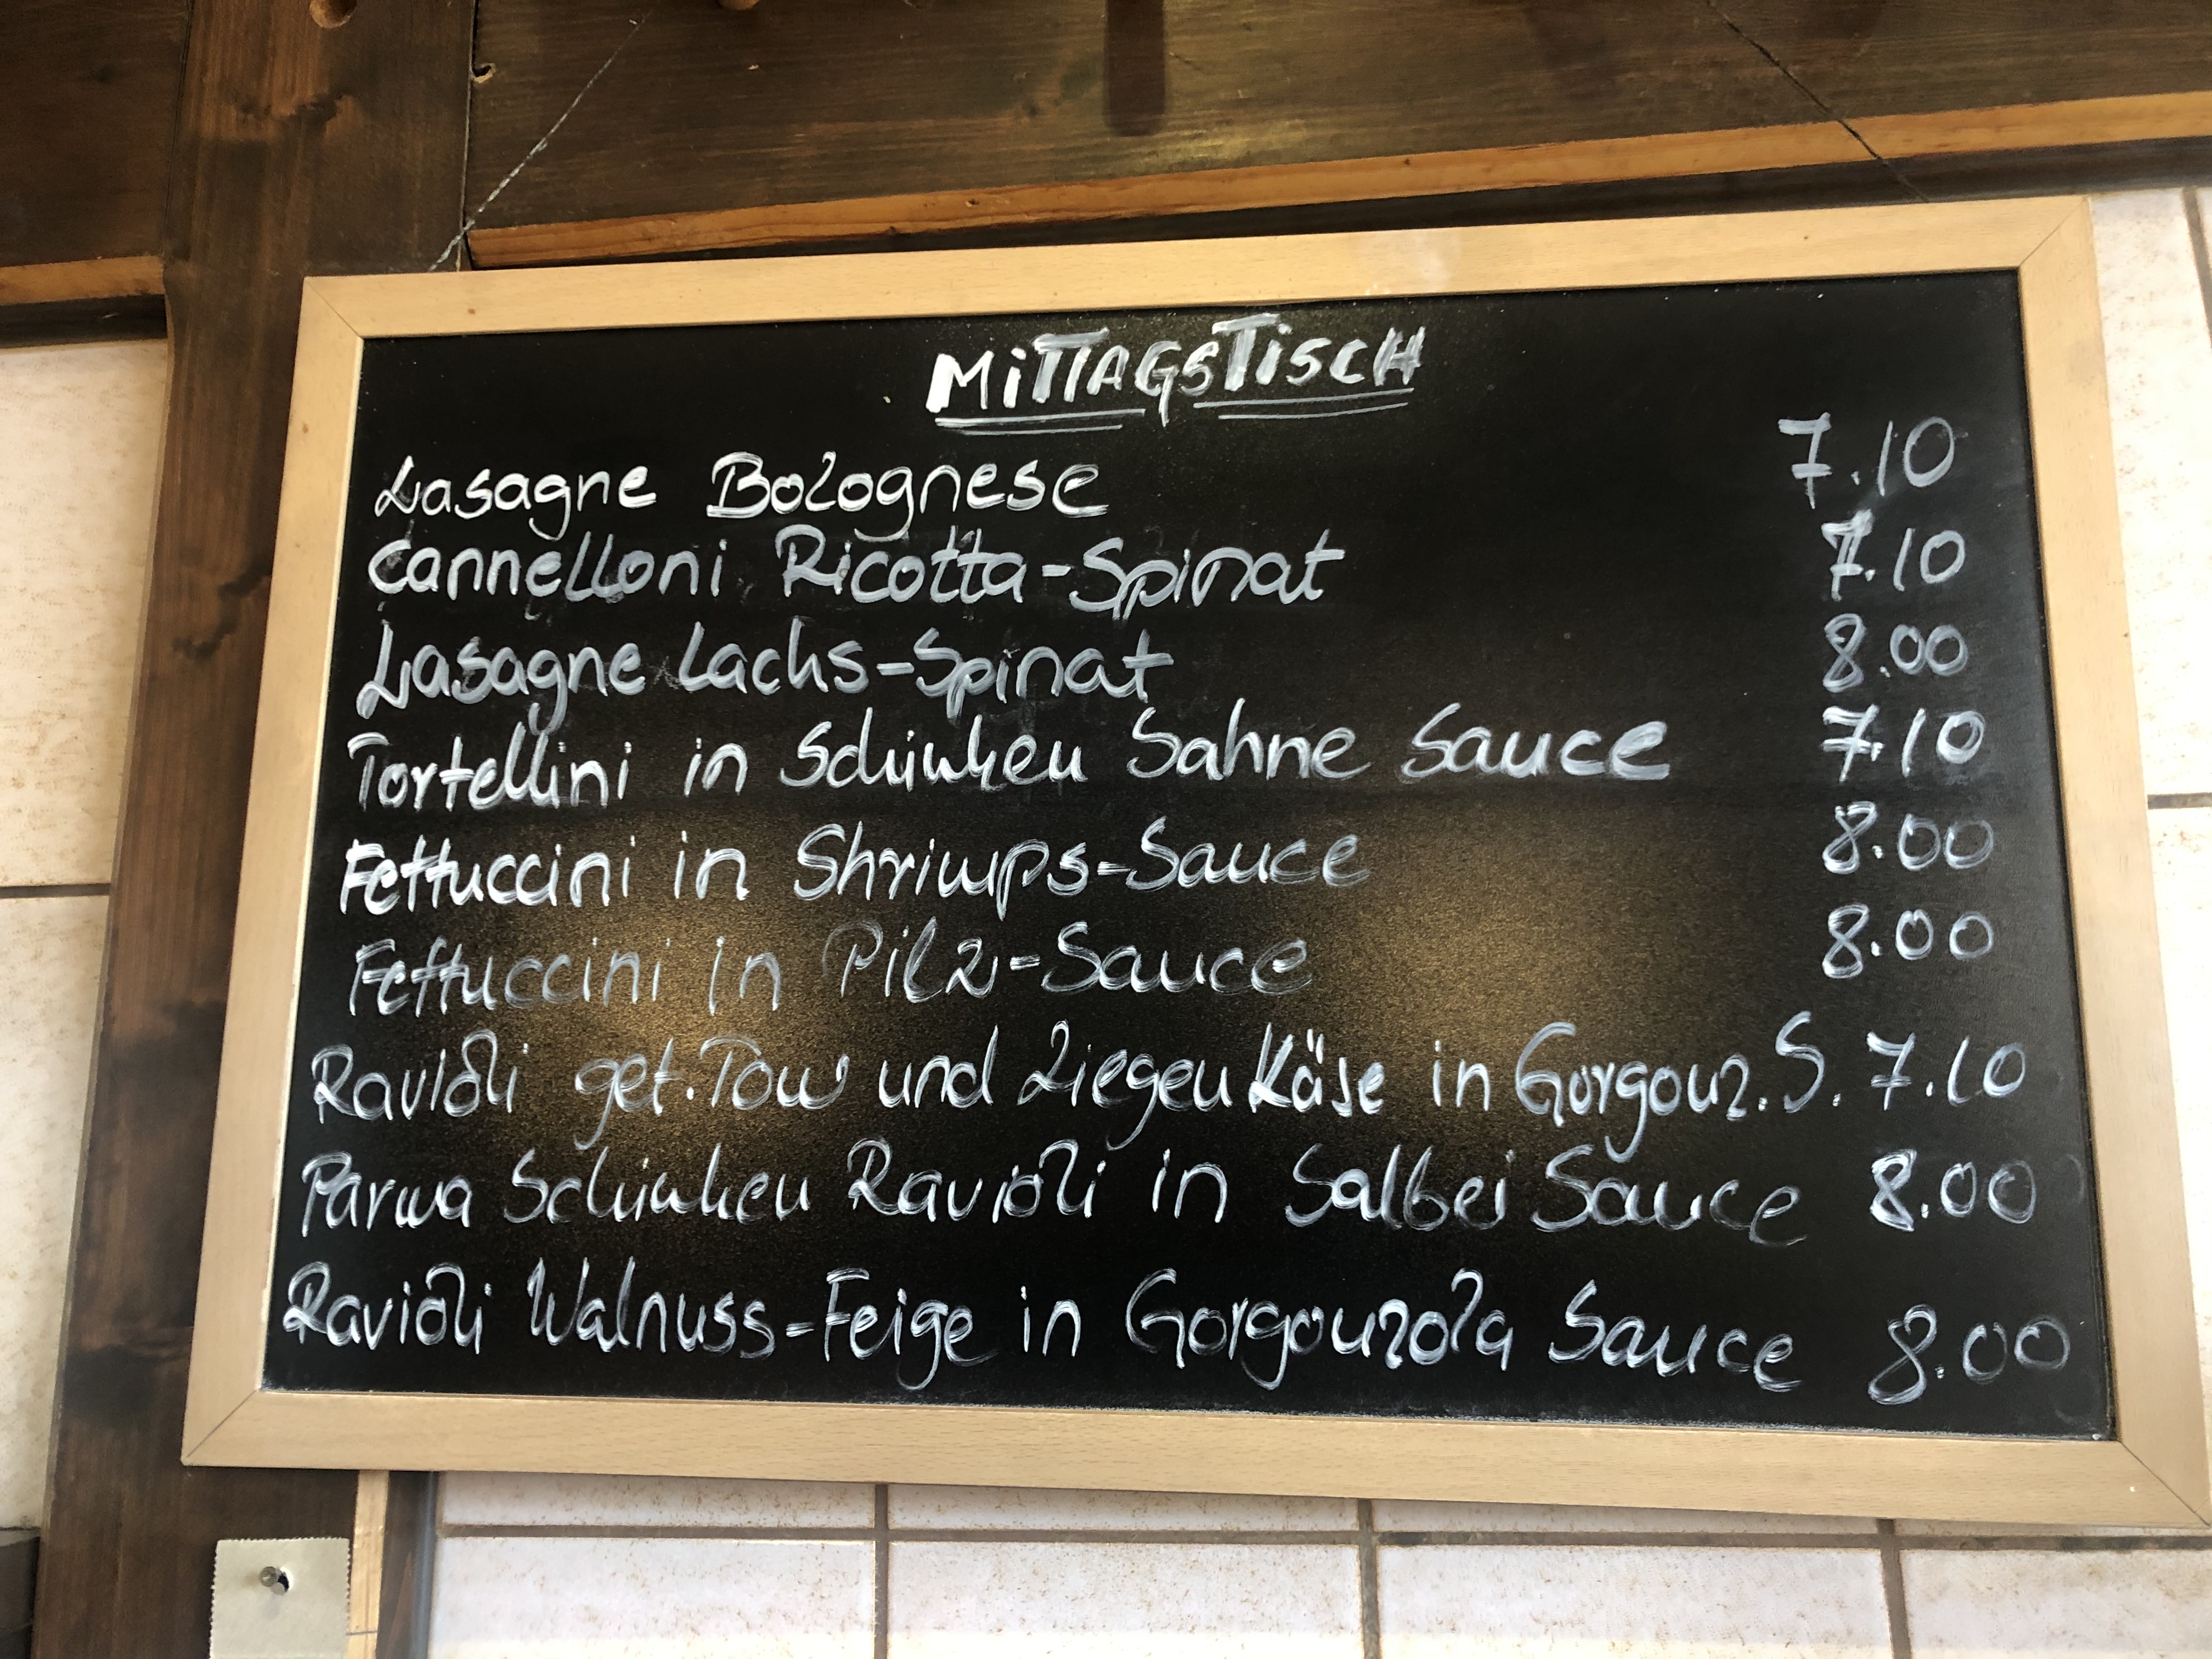 MITTAGSTISCH
Lasagne Bolognese 7.10
Cannelloni Ricotta-Spinat 7.10
Lasagne Lachs-Spinat 8.00
Tortellini in Schinken Sahne Sauce 7.10
Fettuccini in Shrimps-Sauce 8.00
Fettuccini in Pilz-Sauce 8.00
Ravioli get. Tom und Ziegen Käse in Gorgonz. S. 7.10
Parma Schinken Ravioli in Salbei Sauce 8.00
Ravioli Walnuss-Feige in Gorgonzola Sauce 8.00